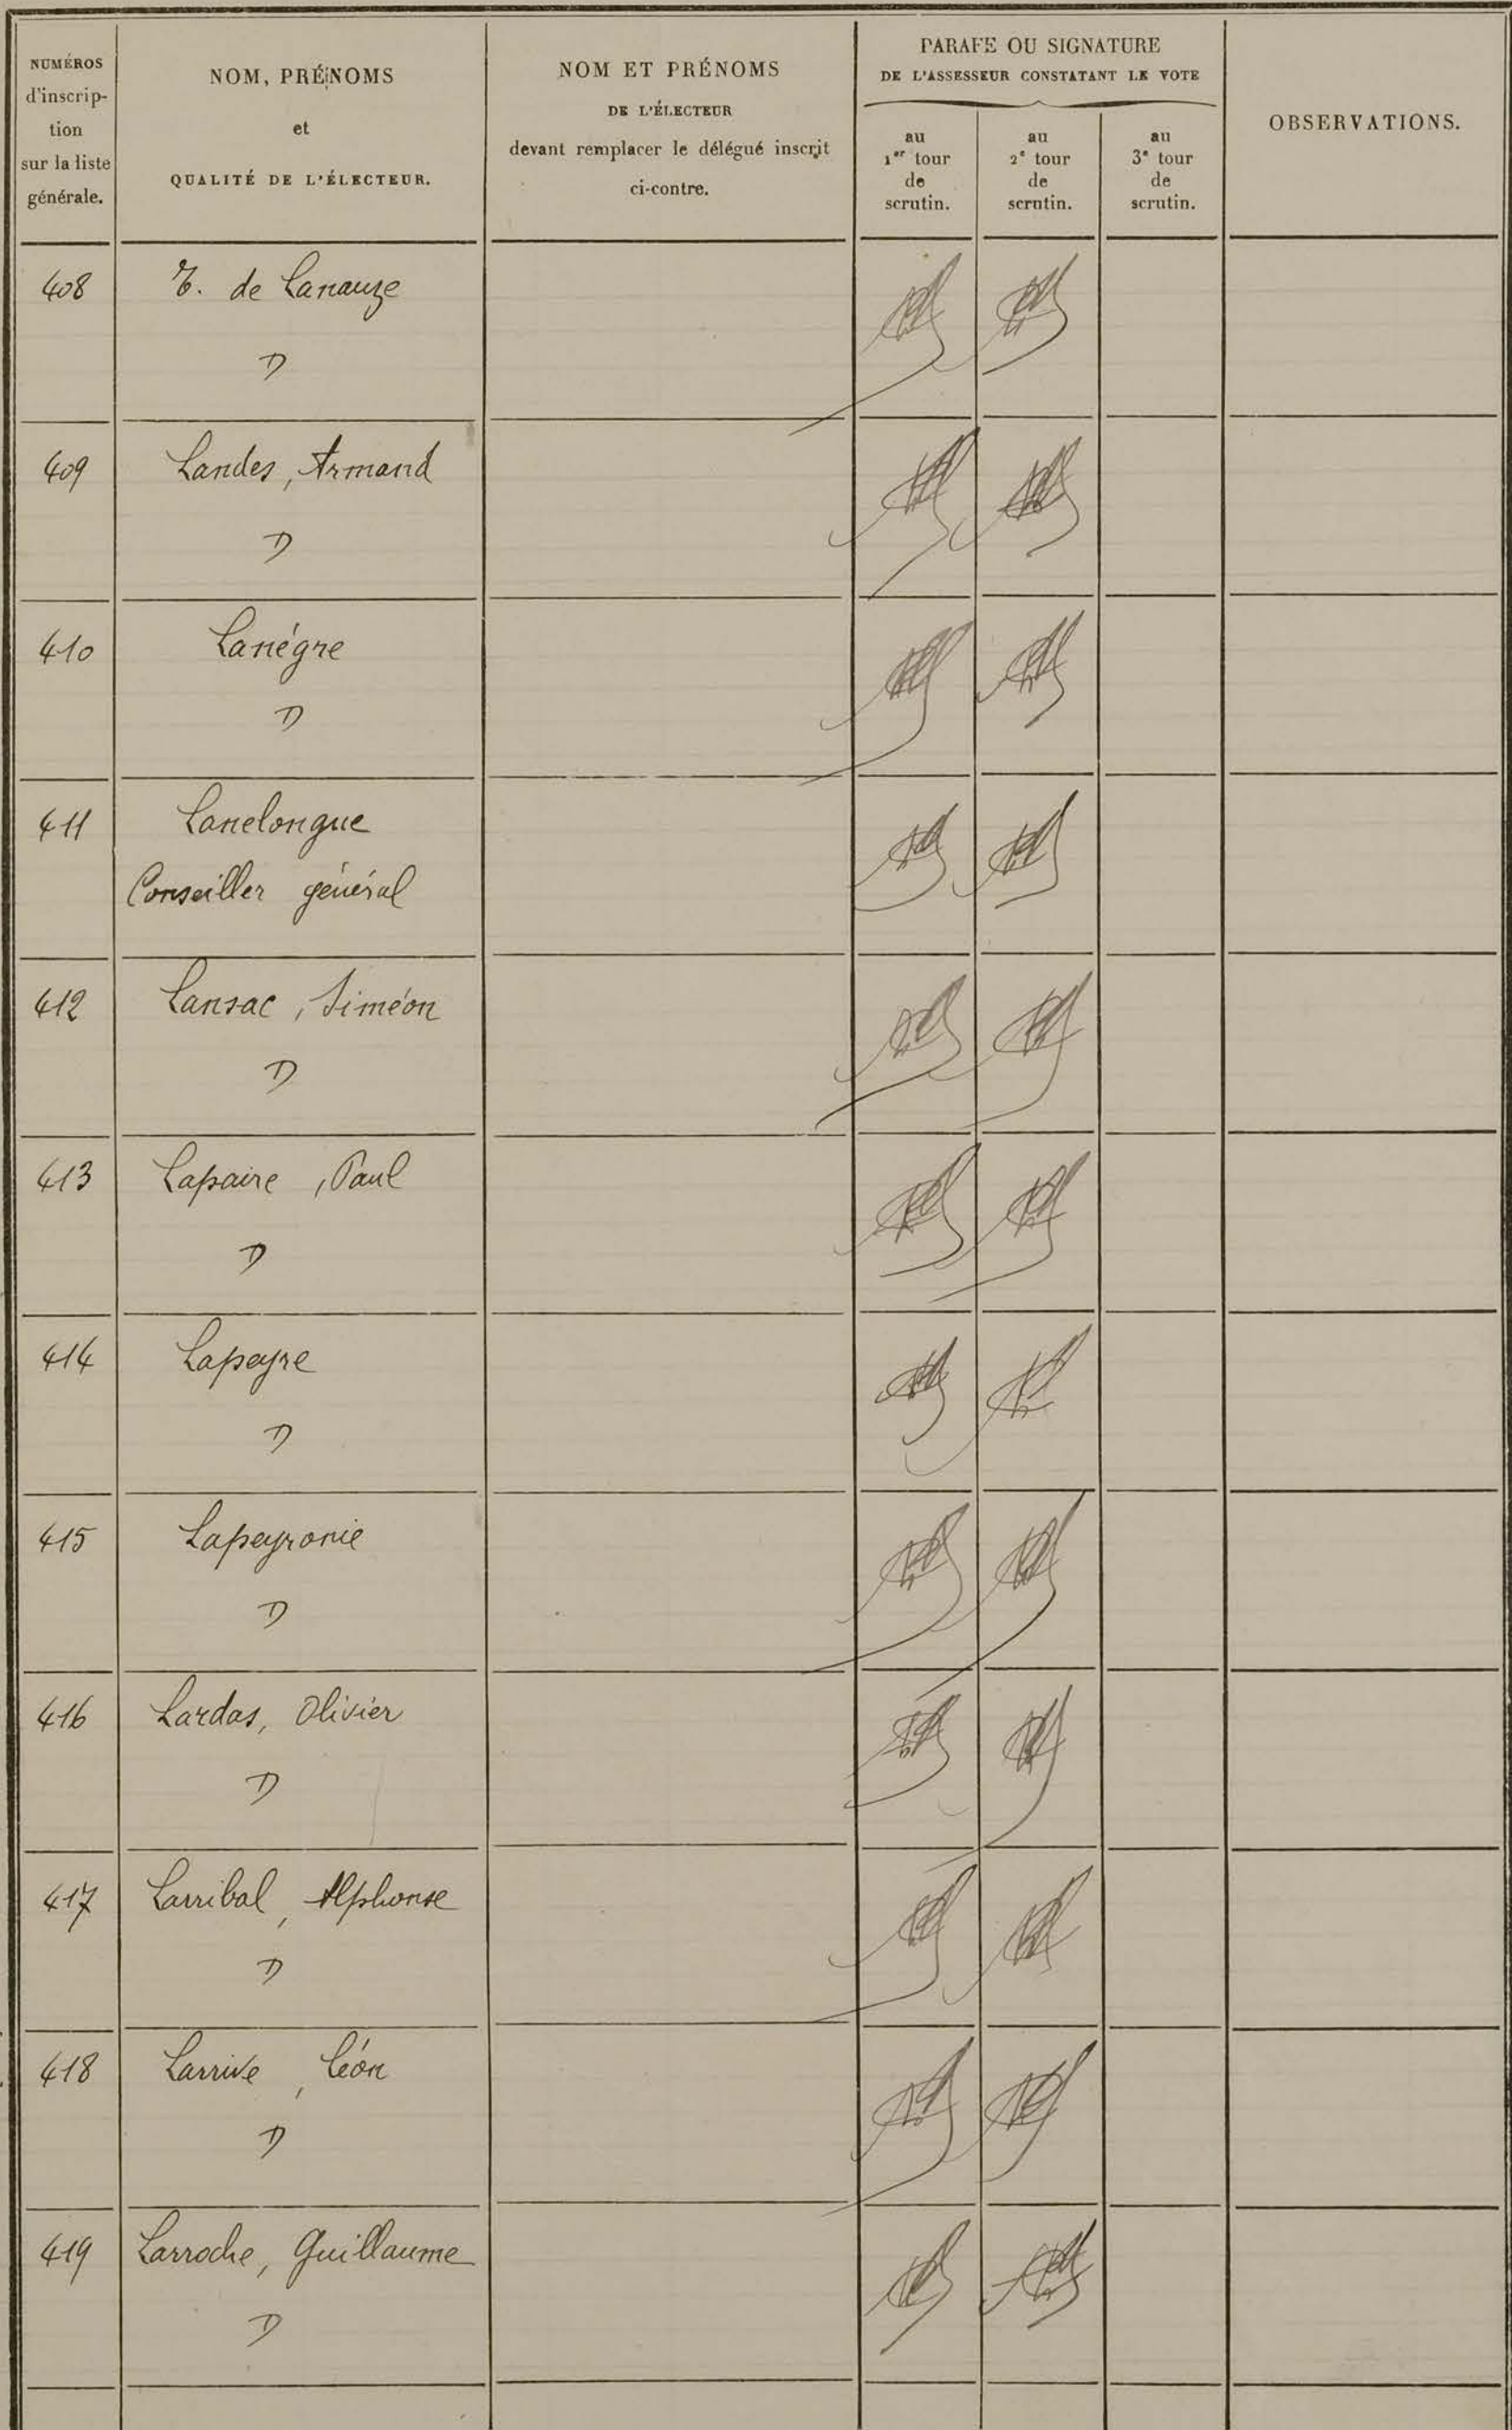 NUMÉROS
d'inscrip-
tion
sur la liste
générale.
NOM, PRÉNOMS
et
QUALITÉ DE L'ÉLECTEUR.
NOM ET PRÉNOMS
DE L'ÉLECTEUR
devant remplacer le délégué inscrit
ci-contre.
PARAFE OU SIGNATURE
DE L'ASSESSEUR CONSTATANT LE VOTE
au
1er tour
de
scrutin.
au
2e tour
de
scrutin.
au
3e tour
de
scrutin.
OBSERVATIONS.
408 de Lanauze
D
409 Landes, Armand
D
410 Lanégre
D
411 Lanelongue
Conseiller général
412 Lansac, Siméon
D
413 Lapaire, Paul
D
414 Lapeyre
D
415 Lapeyronie
D
416 Lardas, Olivier
D
417 Larribal, Alphonse
D
418 Larrive, Léon
D
419 Larroche, Guillaume
D